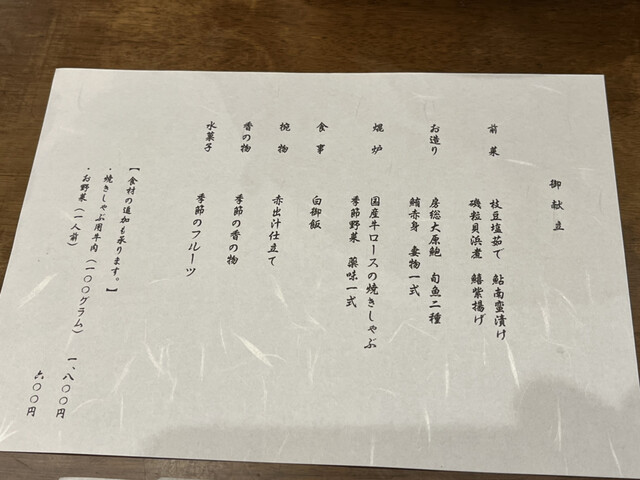 御献立
前菜　枝豆塩茹で　鮎南蛮漬け
磯粒貝浜煮　鱚紫揚げ
お造り　房総大原鮑　旬魚二種
鮪赤身　妻物一式
焜炉　国産牛ロースの焼きしゃぶ
季節野菜　薬味一式
食事　白御飯
椀物　赤出汁仕立て
香の物　季節の香の物
水菓子　季節のフルーツ
【食材の追加も承ります。】
・焼きしゃぶ用牛肉（一〇〇グラム）　一、八〇〇円
・お野菜（一人前）　六〇〇円